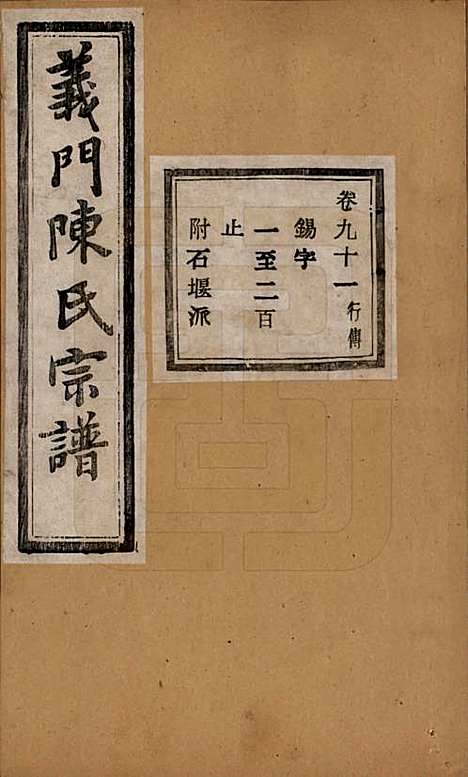 義門陳氏宗譜
卷九十一行傳
錫字
一至二百
止
附石堰派